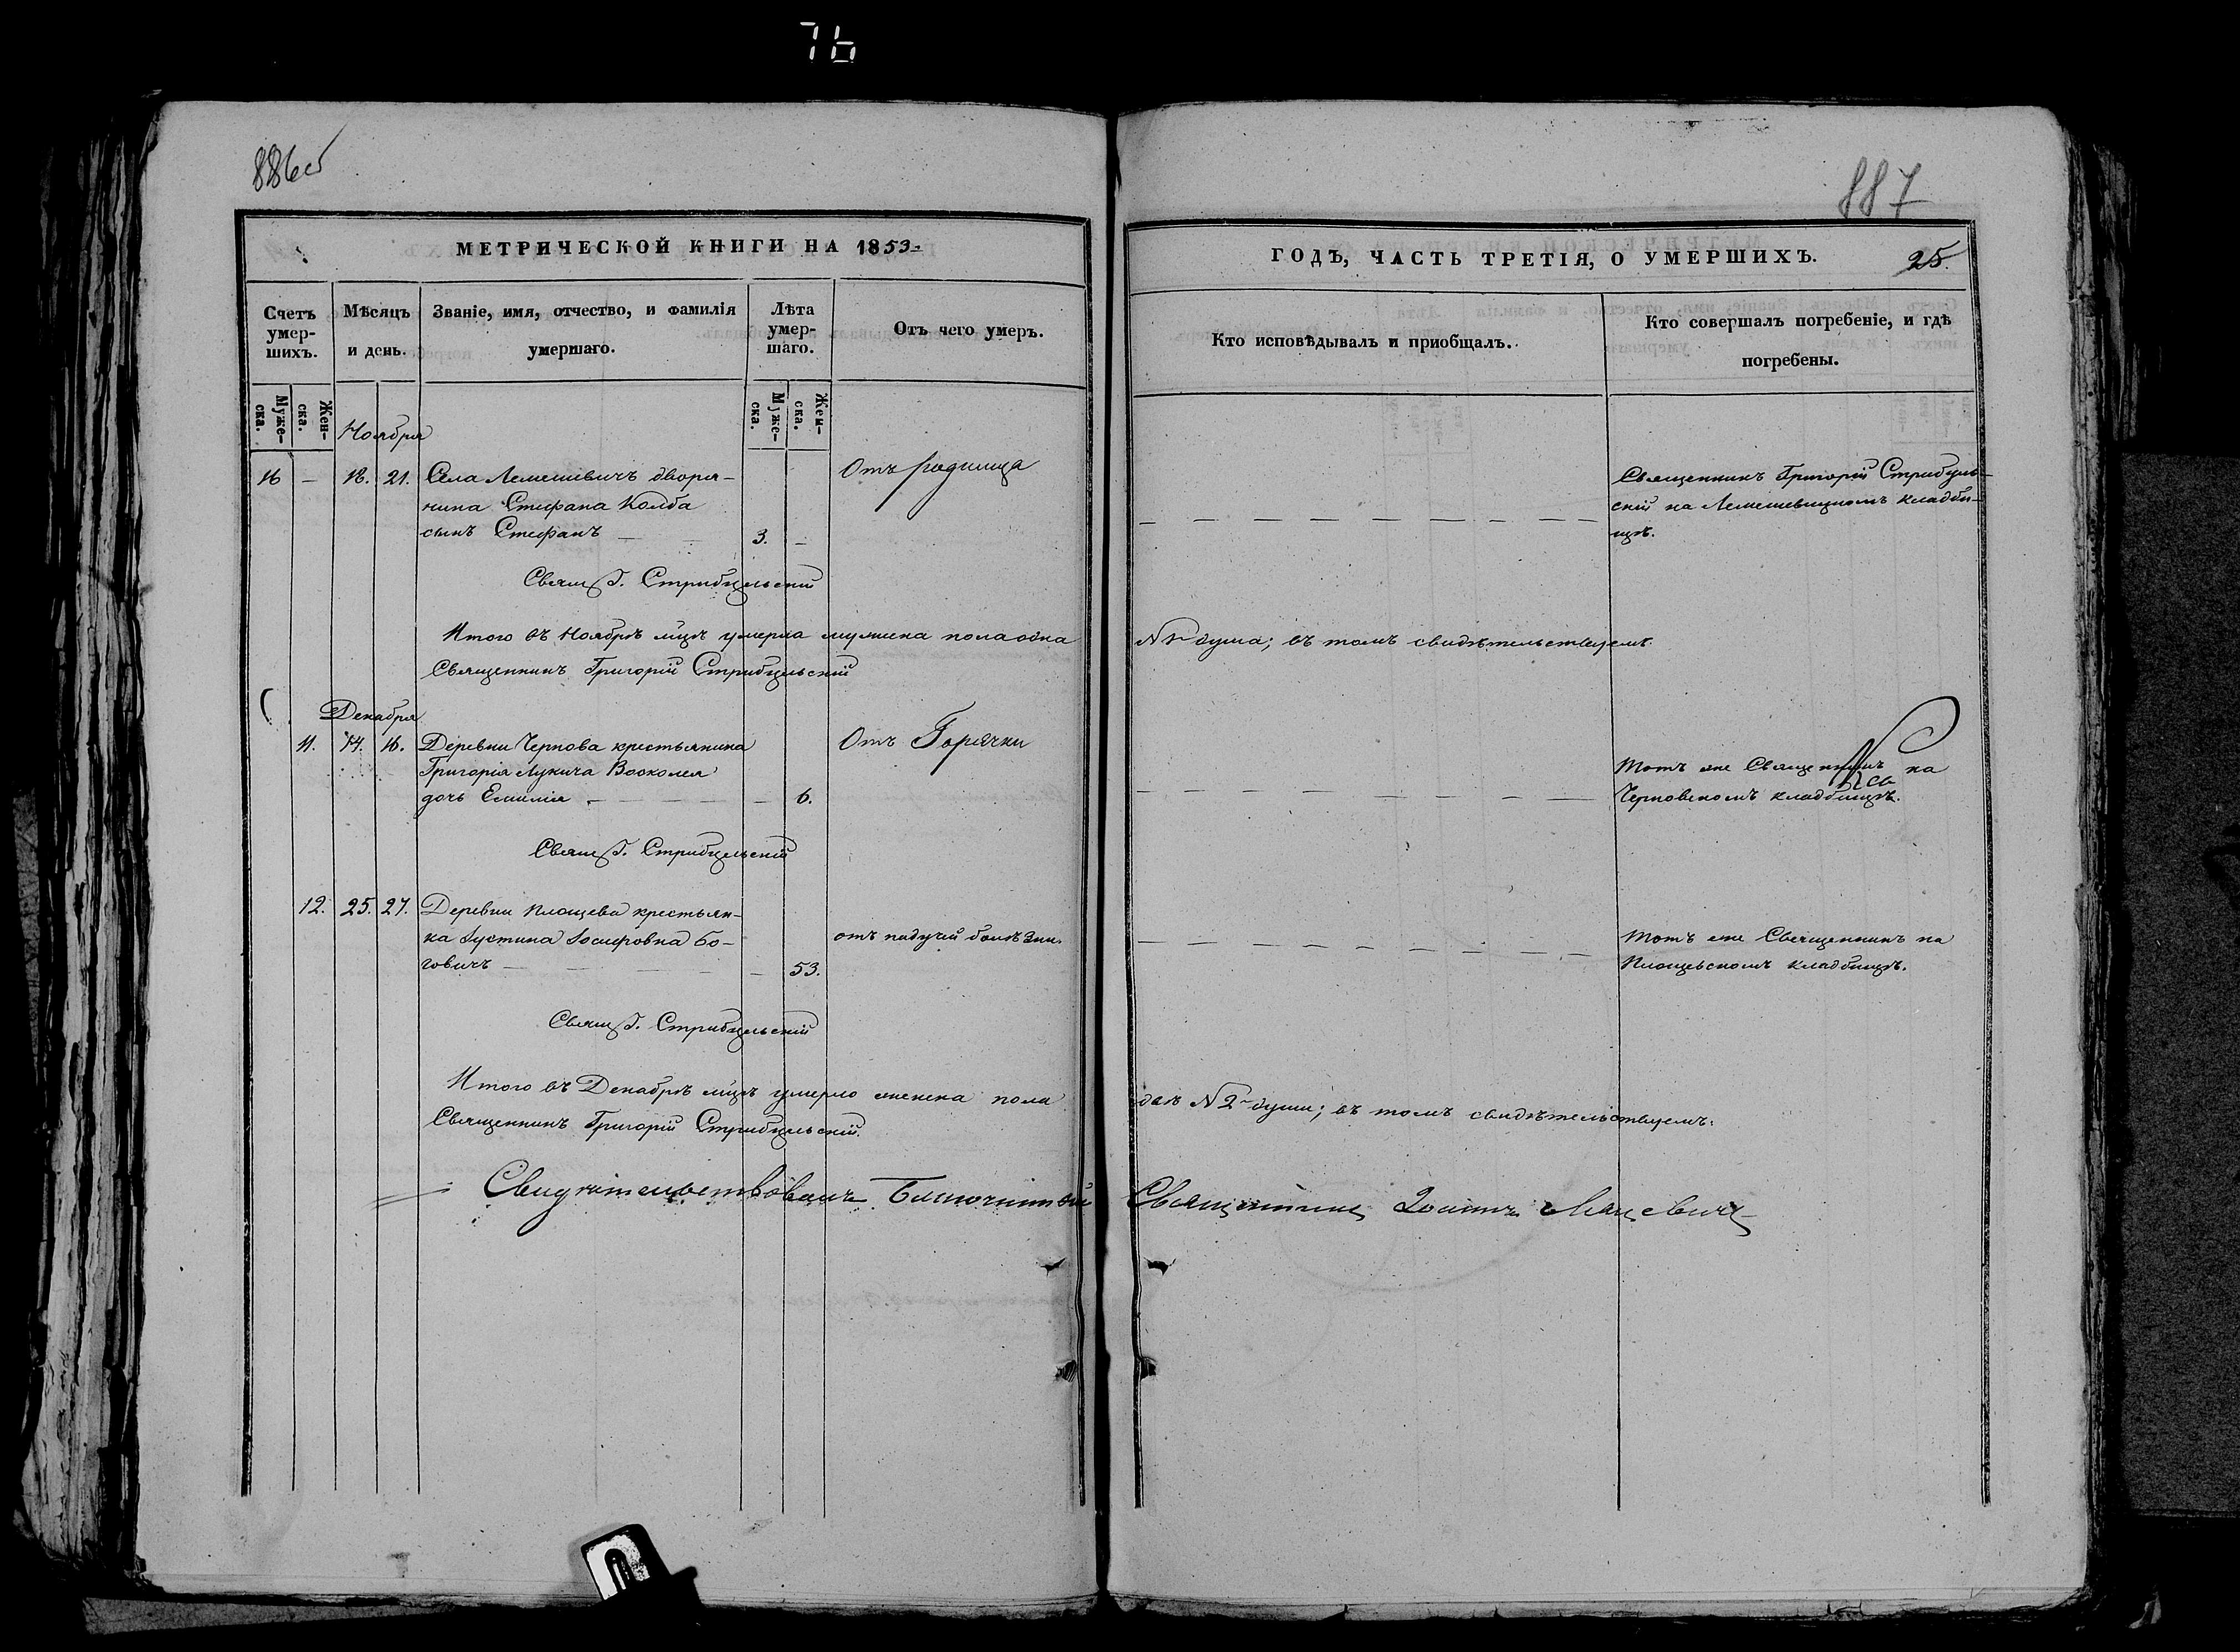 76
886об
887
МЕТРИЧЕСКОЙ КНИГИ НА 1853
ГОДЪ, ЧАСТЬ ТРЕТІЯ, О УМЕРШИХЪ. 25.
Счетъ умер-шихъ.
Мѣсяцъ и день.
Званіе, имя, отчество, и фамилія умершаго.
Лѣта умер-шаго.
Отъ чего умеръ.
Кто исповѣдывалъ и пріобщалъ.
Кто совершалъ погребеніе, и гдѣ погребены.
Муже-ска.
Жен-ска.
Муже-ска.
Жен-ска.
Ноября
16 – 18. 21. Села Лемешевичъ дворя-
нина Стефана Колба
сынъ Стефанъ – 3. –
Отъ родимца
Священникъ Григорій Стрибуль-
скій на Лемешевицкомъ кладби-
щѣ.
Свящ. Г. Стрибульскій
Итого въ Ноябрѣ мцѣ умерла мужеска пола одна № 1 душа; въ томъ свидѣтельствуемъ
Священникъ Григорій Стрибульскій
Декабря
11. 14. 16. Деревни Чернова крестьянина
Григорія Лукича
дочь Емилія – 6.
Отъ Горячки
Тотъ же Священникъ на
Черновскомъ кладбищѣ.
Свящ. Г. Стрибульскій
12. 25. 27. Деревни Площева крестьян-
ка Іустина Іосифовна Бо-
говичъ – 53.
отъ падучей болѣзни.
Тотъ же Священникъ на
Площевскомъ кладбищѣ.
Свящ. Г. Стрибульскій
Итого въ Декабрѣ мцѣ умерло женска пола двѣ № 2 души; въ томъ свидѣтельствуемъ.
Священникъ Григорій Стрибульскій.
Свидѣтельствовалъ Благочинный Священникъ